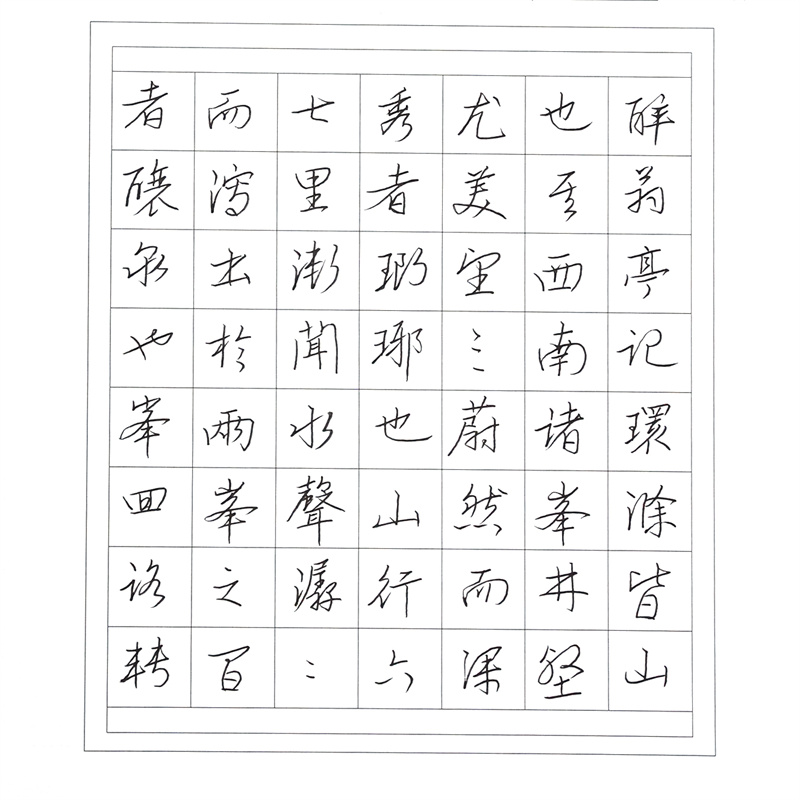 醉翁亭記環滁皆山
也其西南諸峯林壑
尤美望之蔚然而深
秀者瑯琊也山行六
七里漸聞水聲潺〻
而瀉出於兩峯之間
者釀泉也峯回路轉